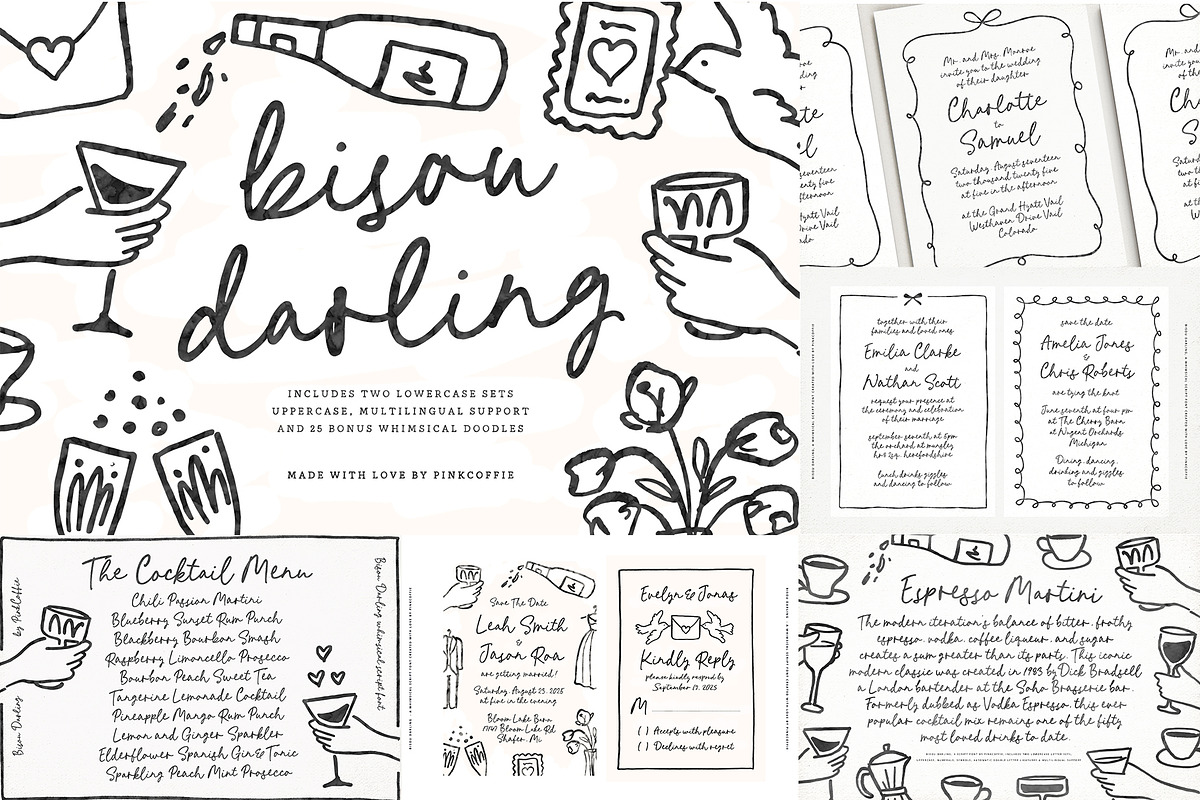 bisou
darling
INCLUDES TWO LOWERCASE SETS
UPPERCASE, MULTILINGUAL SUPPORT
AND 25 BONUS WHIMSICAL DOODLES
MADE WITH LOVE BY PINKCOFFIE
Mr. and Mrs. Monroe
invite you to the wedding
of their daughter
Charlotte
to
Samuel
Saturday, August seventeen
two thousand twenty five
at five in the afternoon
at the Grand Hyatt Vail
Westhaven Drive Vail
Colorado
together with their
families and loved ones
Emilia Clarke
and
Nathan Scott
request your presence at
the ceremony and celebration
of their marriage
september seventh at 5pm
the orchard at munsley
hr8 2sq. herefordshire
lunch drinks giggles
and dancing to follow
save the date
Amelia Jones
&
Chris Roberts
are tying the knot
June seventh at four pm
at The Cherry Barn
at Nugent Orchards
Michigan
Dining, dancing,
drinking and giggles
to follow
The Cocktail Menu
Chili Passion Martini
Blueberry Sunset Rum Punch
Blackberry Bourbon Smash
Raspberry Limoncello Prosecco
Bourbon Peach Sweet Tea
Tangerine Lemonade Cocktail
Pineapple Mango Rum Punch
Lemon and Ginger Sparkler
Elderflower Spanish Gin & Tonic
Sparkling Peach Mint Prosecco
Bisou Darling
by PinkCoffie
Bisou Darling whimsical script font
Save The Date
Leah Smith
&
Jason Roa
are getting married!
Saturday, August 23, 2025
at five in the evening
Bloom Lake Barn
Bloom Lake Rd
Shafer, M.
Evelyn & Jonas
Kindly Reply
please kindly respond by
September 17, 2025
M
( ) Accepts with pleasure
( ) Declines with regret
Espresso Martini
The modern iteration's balance of bitter, frothy
espresso, vodka, coffee liqueur, and sugar
creates a sum greater than its parts. This iconic
modern classic was created in 1983 by Dick Bradsell
a London bartender at the Soho Brasserie bar.
Formerly dubbed as Vodka Espresso, this ever
popular cocktail mix remains one of the fifty
most loved drinks to date.